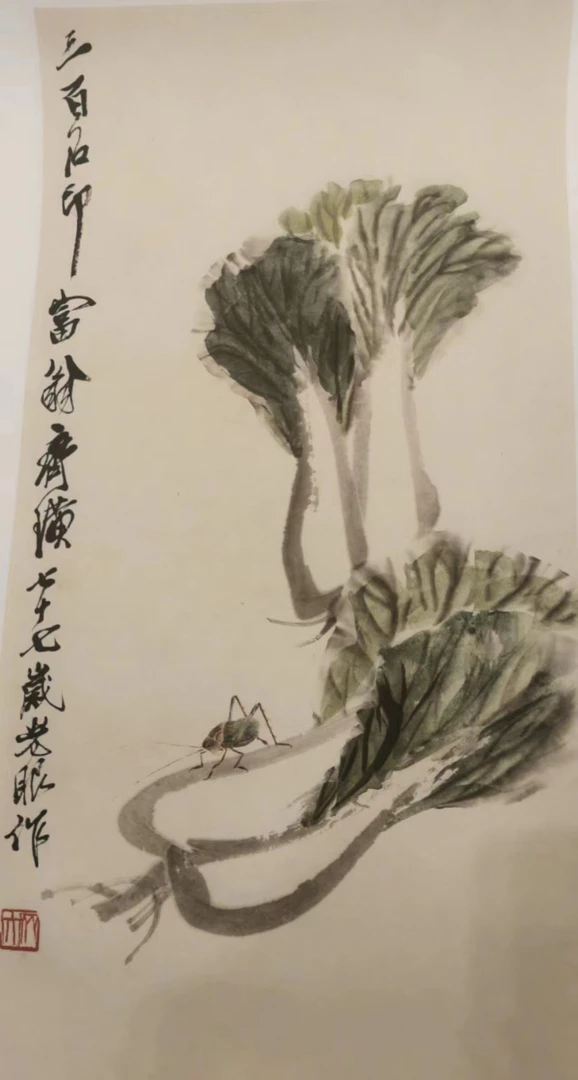 三百石印富翁齐璜七十七岁老眼作